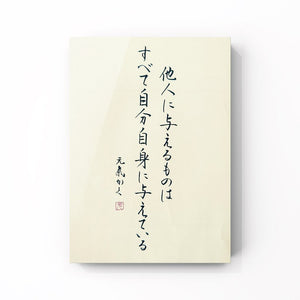 他人に与えるものは
すべて自分自身に与えている
元氣かく